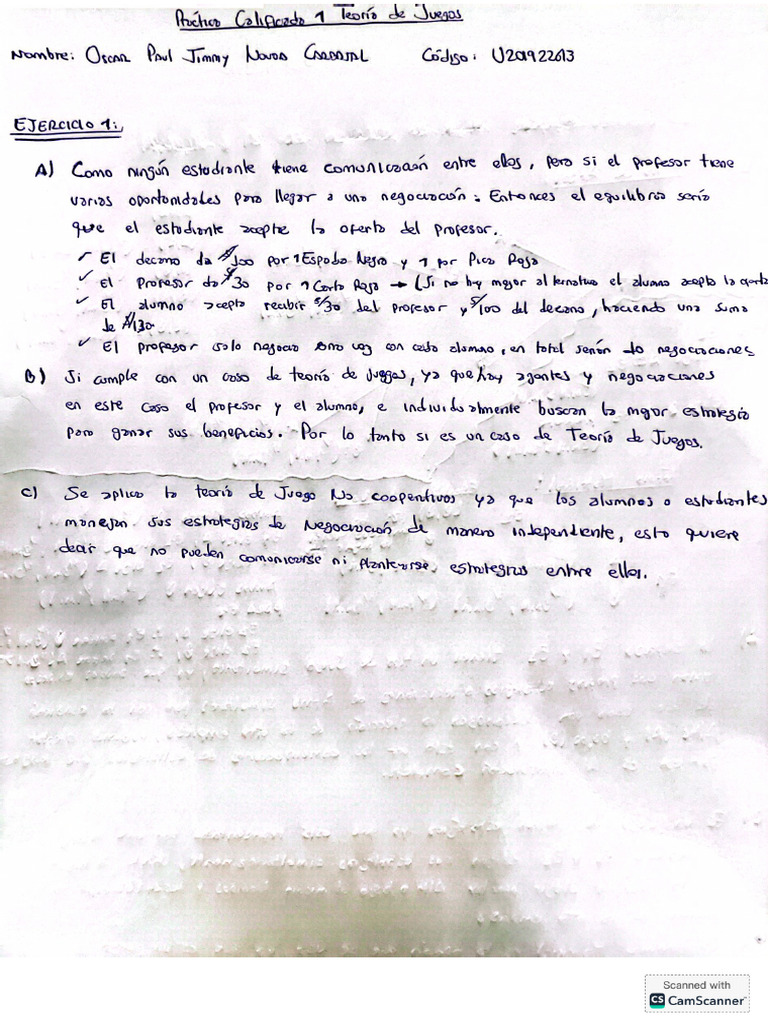 Práctica Calificada 1 Teoría de Juegos
Nombre: OSCAR PAUL JIMMY NOVOA CARBAJAL Código: U201922613
EJERCICIO 1:
A) Como ningún estudiante tiene comunicación entre ellos, pero si el profesor tiene
varias oportunidades para llegar a una negociación. Entonces el equilibrio sería
que el estudiante acepte la oferta del profesor.
✓ El decano da $100 por 1 Espada Negra y 1 por Pica Roja
✓ El Profesor da $30 por 1 Carta Roja → (Si no hay mejor alternativa el alumno acepta la oferta
✓ El alumno acepta recibir $30 del profesor y $100 del decano, haciendo una suma
de $130.
✓ El profesor solo negocia una vez con cada alumno, en total serán negociaciones
B) Si cumple con un caso de teoría de juegos, ya que hay agentes y negociaciones
en este caso el profesor y el alumno, e individualmente buscan la mejor estrategia
para ganar sus beneficios. Por lo tanto si es un caso de Teoría de Juegos.
C) Se aplica la teoría de Juego No cooperativos ya que los alumnos o estudiantes
manejan sus estrategias de Negociación de manera independiente, esto quiere
decir que no pueden comunicarse ni plantearse estrategias entre ellos.
Scanned with
CS CamScanner